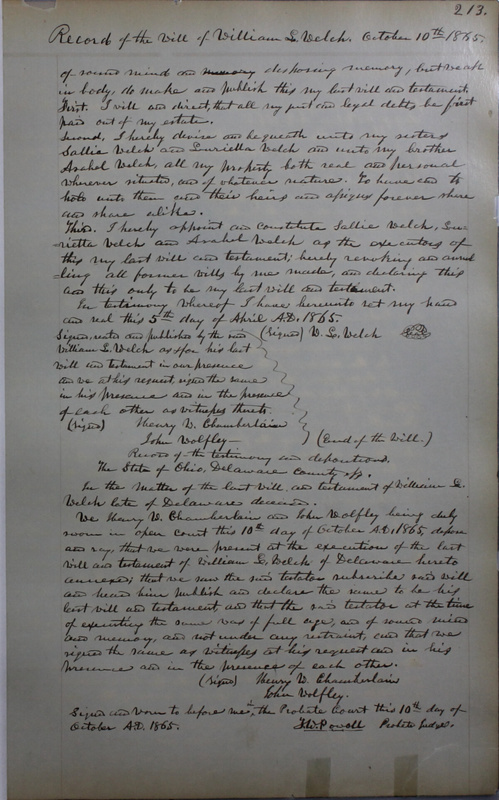 213.
Record of the Will of William L. Welch. October 10th 1865.
of sound mind and memory disposing memory, but weak
in body, do make and publish this my last will and testament.
First. I will and direct, that all my just and legal debts be first
paid out of my estate.
Second, I hereby devise and bequeath unto my sisters
Sallie Welch and Luvietta Welch and unto my brother
Asahel Welch, all my property both real and personal
wherever situated, and of whatever nature. To have and to
hold unto them and their heirs and assigns forever share
and share alike.
Third. I hereby appoint and constitute Sallie Welch, Lu-
=vietta Welch and Asahel Welch as the executors of
this my last will and testament; hereby revoking and annul
=ling all former wills by me made, and declaring this
and this only to be my last will and testament.
In testimony whereof I have hereunto set my hand
and seal this 5th day of April A.D. 1865.
Signed, sealed and published by the said (signed) W. L. Welch
William L. Welch as & for his last
will and testament in our presence
and we at his request, signed the same
in his presence and in the presence
of each other as witnesses thereto.
(signed) Henry V. Chamberlain
John Wolfley (End of the Will.)
Record of the testimony and depositions.
The State of Ohio, Delaware County ss.
In the matter of the last Will and testament of William L.
Welch late of Delaware deceased.
We Henry V. Chamberlain and John Wolfley being duly
sworn in open court this 10th day of October A.D. 1865, depose
and say, that we were present at the execution of the last
will and testament of William L. Welch of Delaware hereto
annexed; that we saw the said testator subscribe said will
and heard him publish and declare the same to be his
last will and testament and that the said testator at the time
of executing the same was of full age, and of sound mind
and memory, and not under any restraint, and that we
signed the same as witnesses at his request and in his
presence and in the presence of each other.
(signed) Henry V. Chamberlain
John Wolfley.
Signed and sworn to before me in the Probate Court this 10th day of
October A.D. 1865. T.W. Powell Probate Judge.